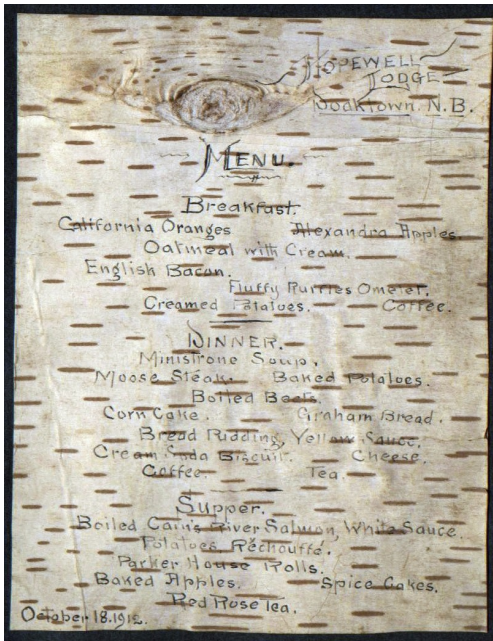 Hopewell
Lodge
Doaktown. N.B.
Menu.
Breakfast.
California Oranges Alexandra Apples.
Oatmeal with Cream.
English Bacon.
Fluffy Ruffles Omelet.
Creamed Potatoes. Coffee.
Dinner.
Ministrone Soup.
Moose Steak. Baked Potatoes.
Boiled Beets.
Corn Cake. Graham Bread.
Bread Pudding, Yellow Sauce.
Cream Soda Biscuit. Cheese.
Coffee. Tea.
Supper.
Boiled Cain's River Salmon, White Sauce.
Potatoes, Réchouffé.
Parker House Rolls.
Baked Apples. Spice Cakes.
Red Rose Tea.
October 18.1912.